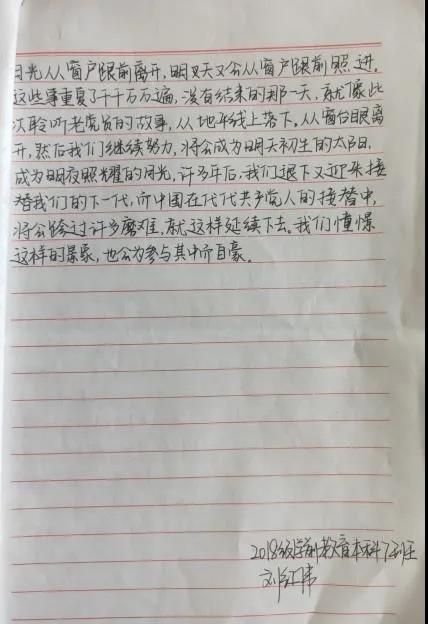 月光从从窗户跟前离开，明天又会从窗户跟前照进。
这些事重复了千千万万遍，没有结束的那一天，就像此
次聆听老党员的故事，从地平线上落下，从窗台眼离
开，然后我们继续努力，将会成为明天初生的太阳，
成为明夜照耀的月光，许多年后，我们退下又迎来接
替我们的下一代，而中国在代代共产党人的接替中，
将会跨过许多磨难，就这样延续下去。我们憧憬
这样的景象，也会为参与其中而自豪。
2018级学前教育本科7班
刘红伟